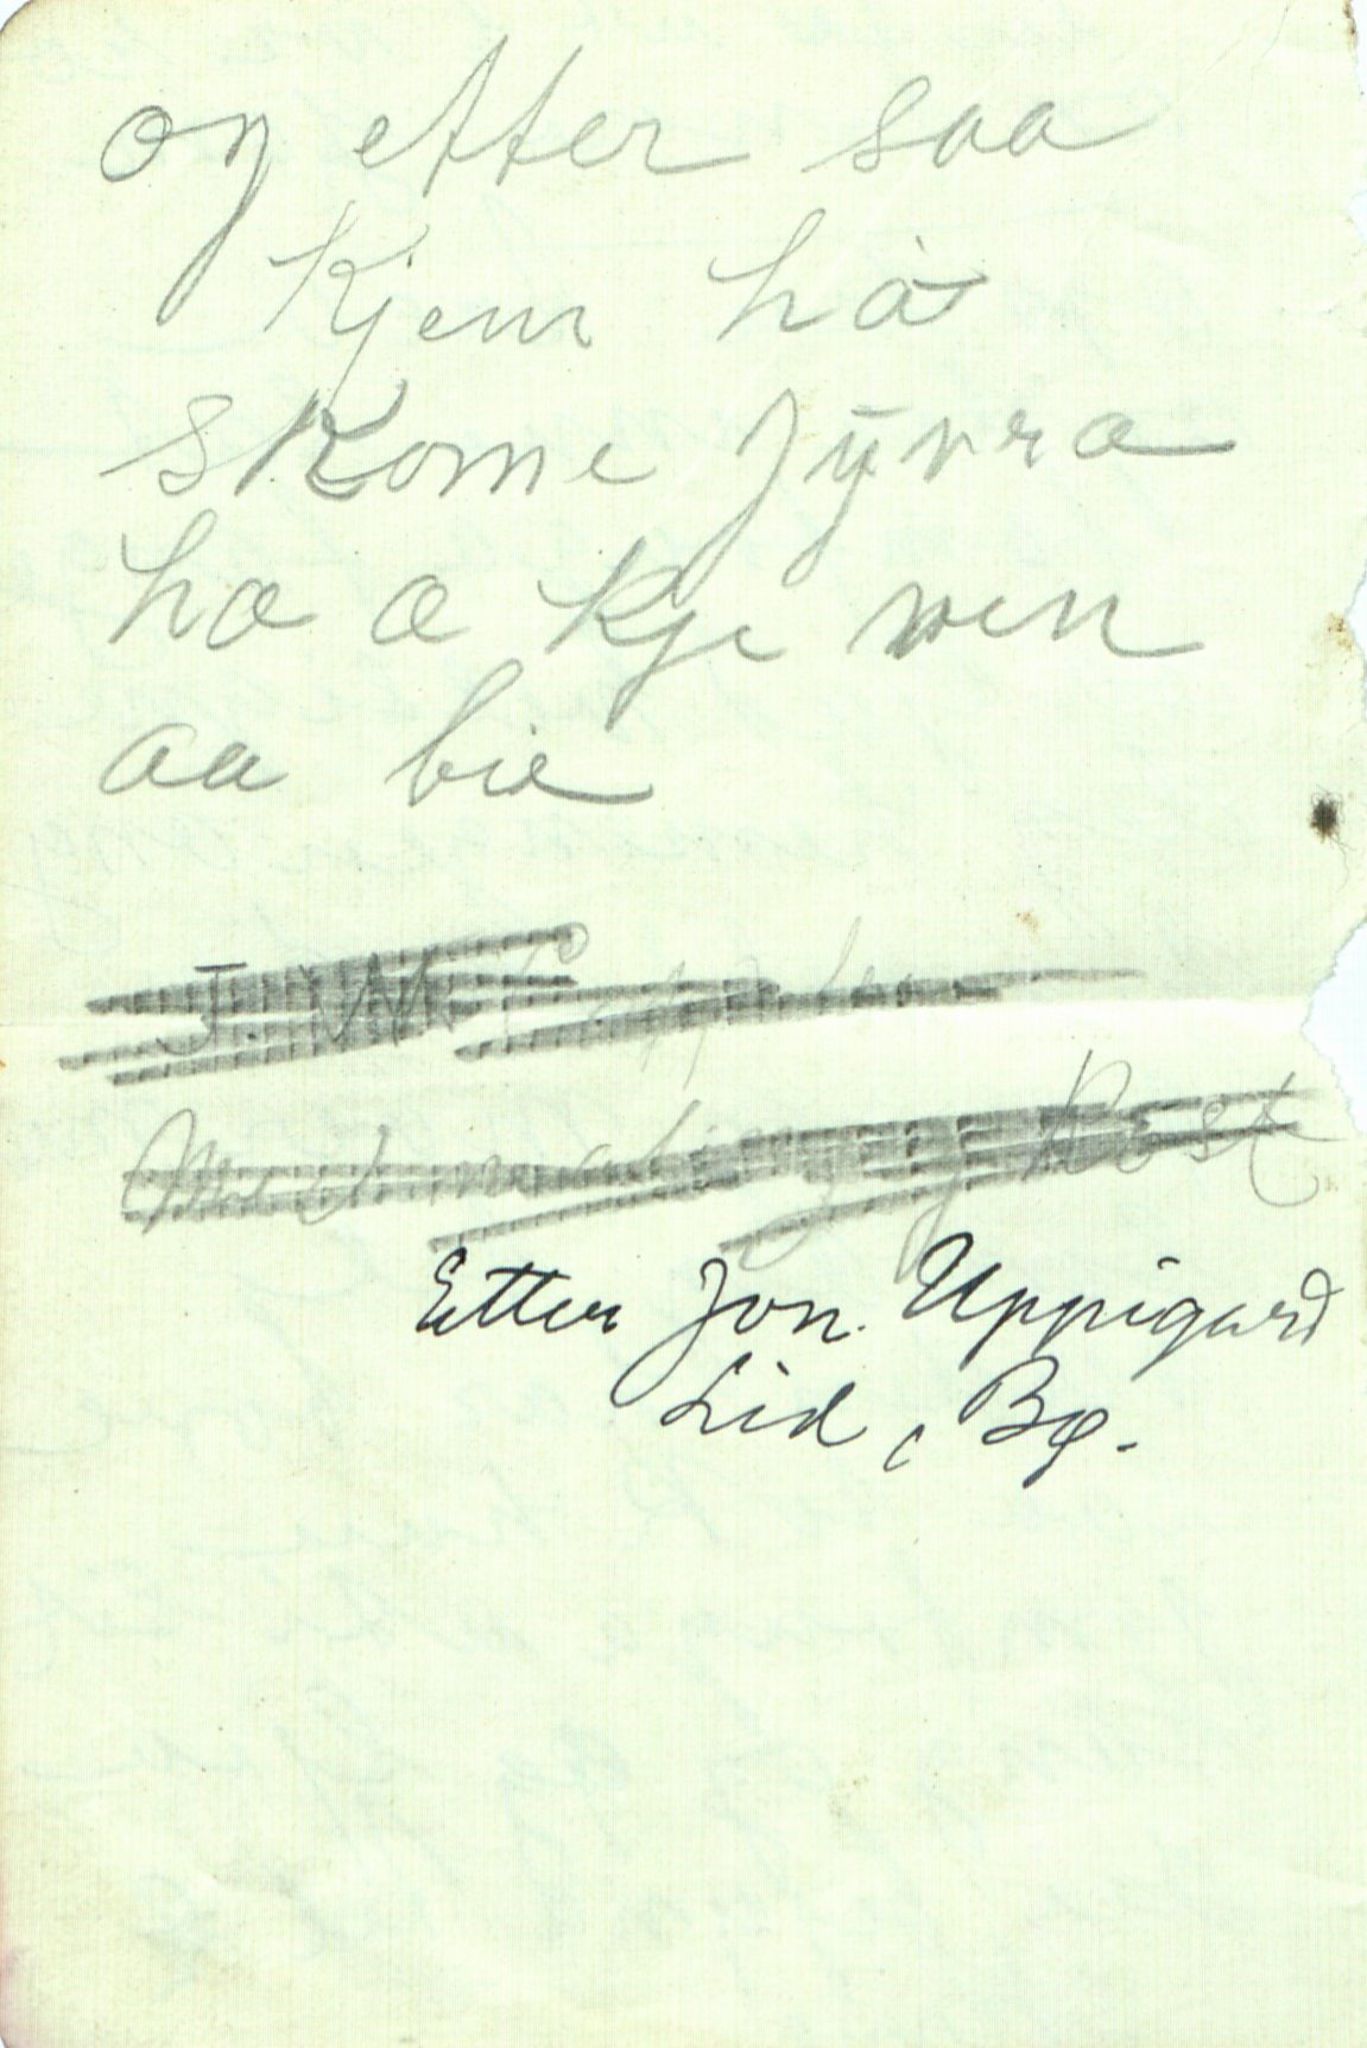 og etter saa
Kjem hà
skome Jÿvra
ha a kje ven
aa bie
J. M.
Post
Etter Jon Uppigard
Lid, Bø.